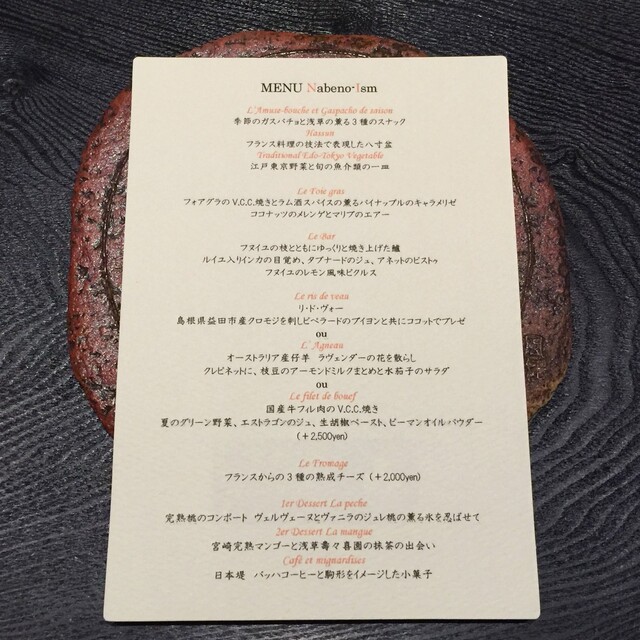 MENU Nabeno-Ism
L'Amuse-bouche et Gaspacho de saison
季節のガスパチョと浅草の薫る3種のスナック
Hassun
フランス料理の技法で表現した八寸盆
Traditional Edo-Tokyo Vegetable
江戸東京野菜と旬の魚介類の一皿
Le Foie gras
フォアグラのV.C.C.焼きとラム酒スパイスの薫るパイナップルのキャラメリゼ
ココナッツのメレンゲとマリブのエアー
Le Bar
フヌイユの枝とともにゆっくりと焼き上げた鱸
ルイユ入りインカの目覚め、タプナードのジュ、アネットのピストゥ
フヌイユのレモン風味ピクルス
Le ris de veau
リ・ド・ヴォー
島根県益田市産クロモジを刺しピペラードのブイヨンと共にココットでブレゼ
ou
L'Agneau
オーストラリア産仔羊 ラヴェンダーの花を散らし
クレピネットに、枝豆のアーモンドミルクまとめと水茄子のサラダ
ou
Le filet de bouef
国産牛フィレ肉のV.C.C.焼き
夏のグリーン野菜、エストラゴンのジュ、生胡椒ペースト、ピーマンオイルパウダー
(+2,500yen)
Le Fromage
フランスからの3種の熟成チーズ (+2,000yen)
1er Dessert La pêche
完熟桃のコンポート ヴェルヴェーヌとヴァニラのジュレ桃の薫る氷を忍ばせて
2er Dessert La mangue
宮崎完熟マンゴーと浅草壽々喜園の抹茶の出会い
Café et mignardises
日本堤 バッハコーヒーと駒形をイメージした小菓子